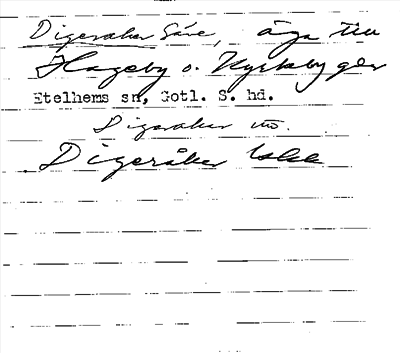 Digeraker Säve, äga till
Hageby o. Kyrkeby går
Etelhems sn, Gotl. S. hd.
Digeraker
Digeråker